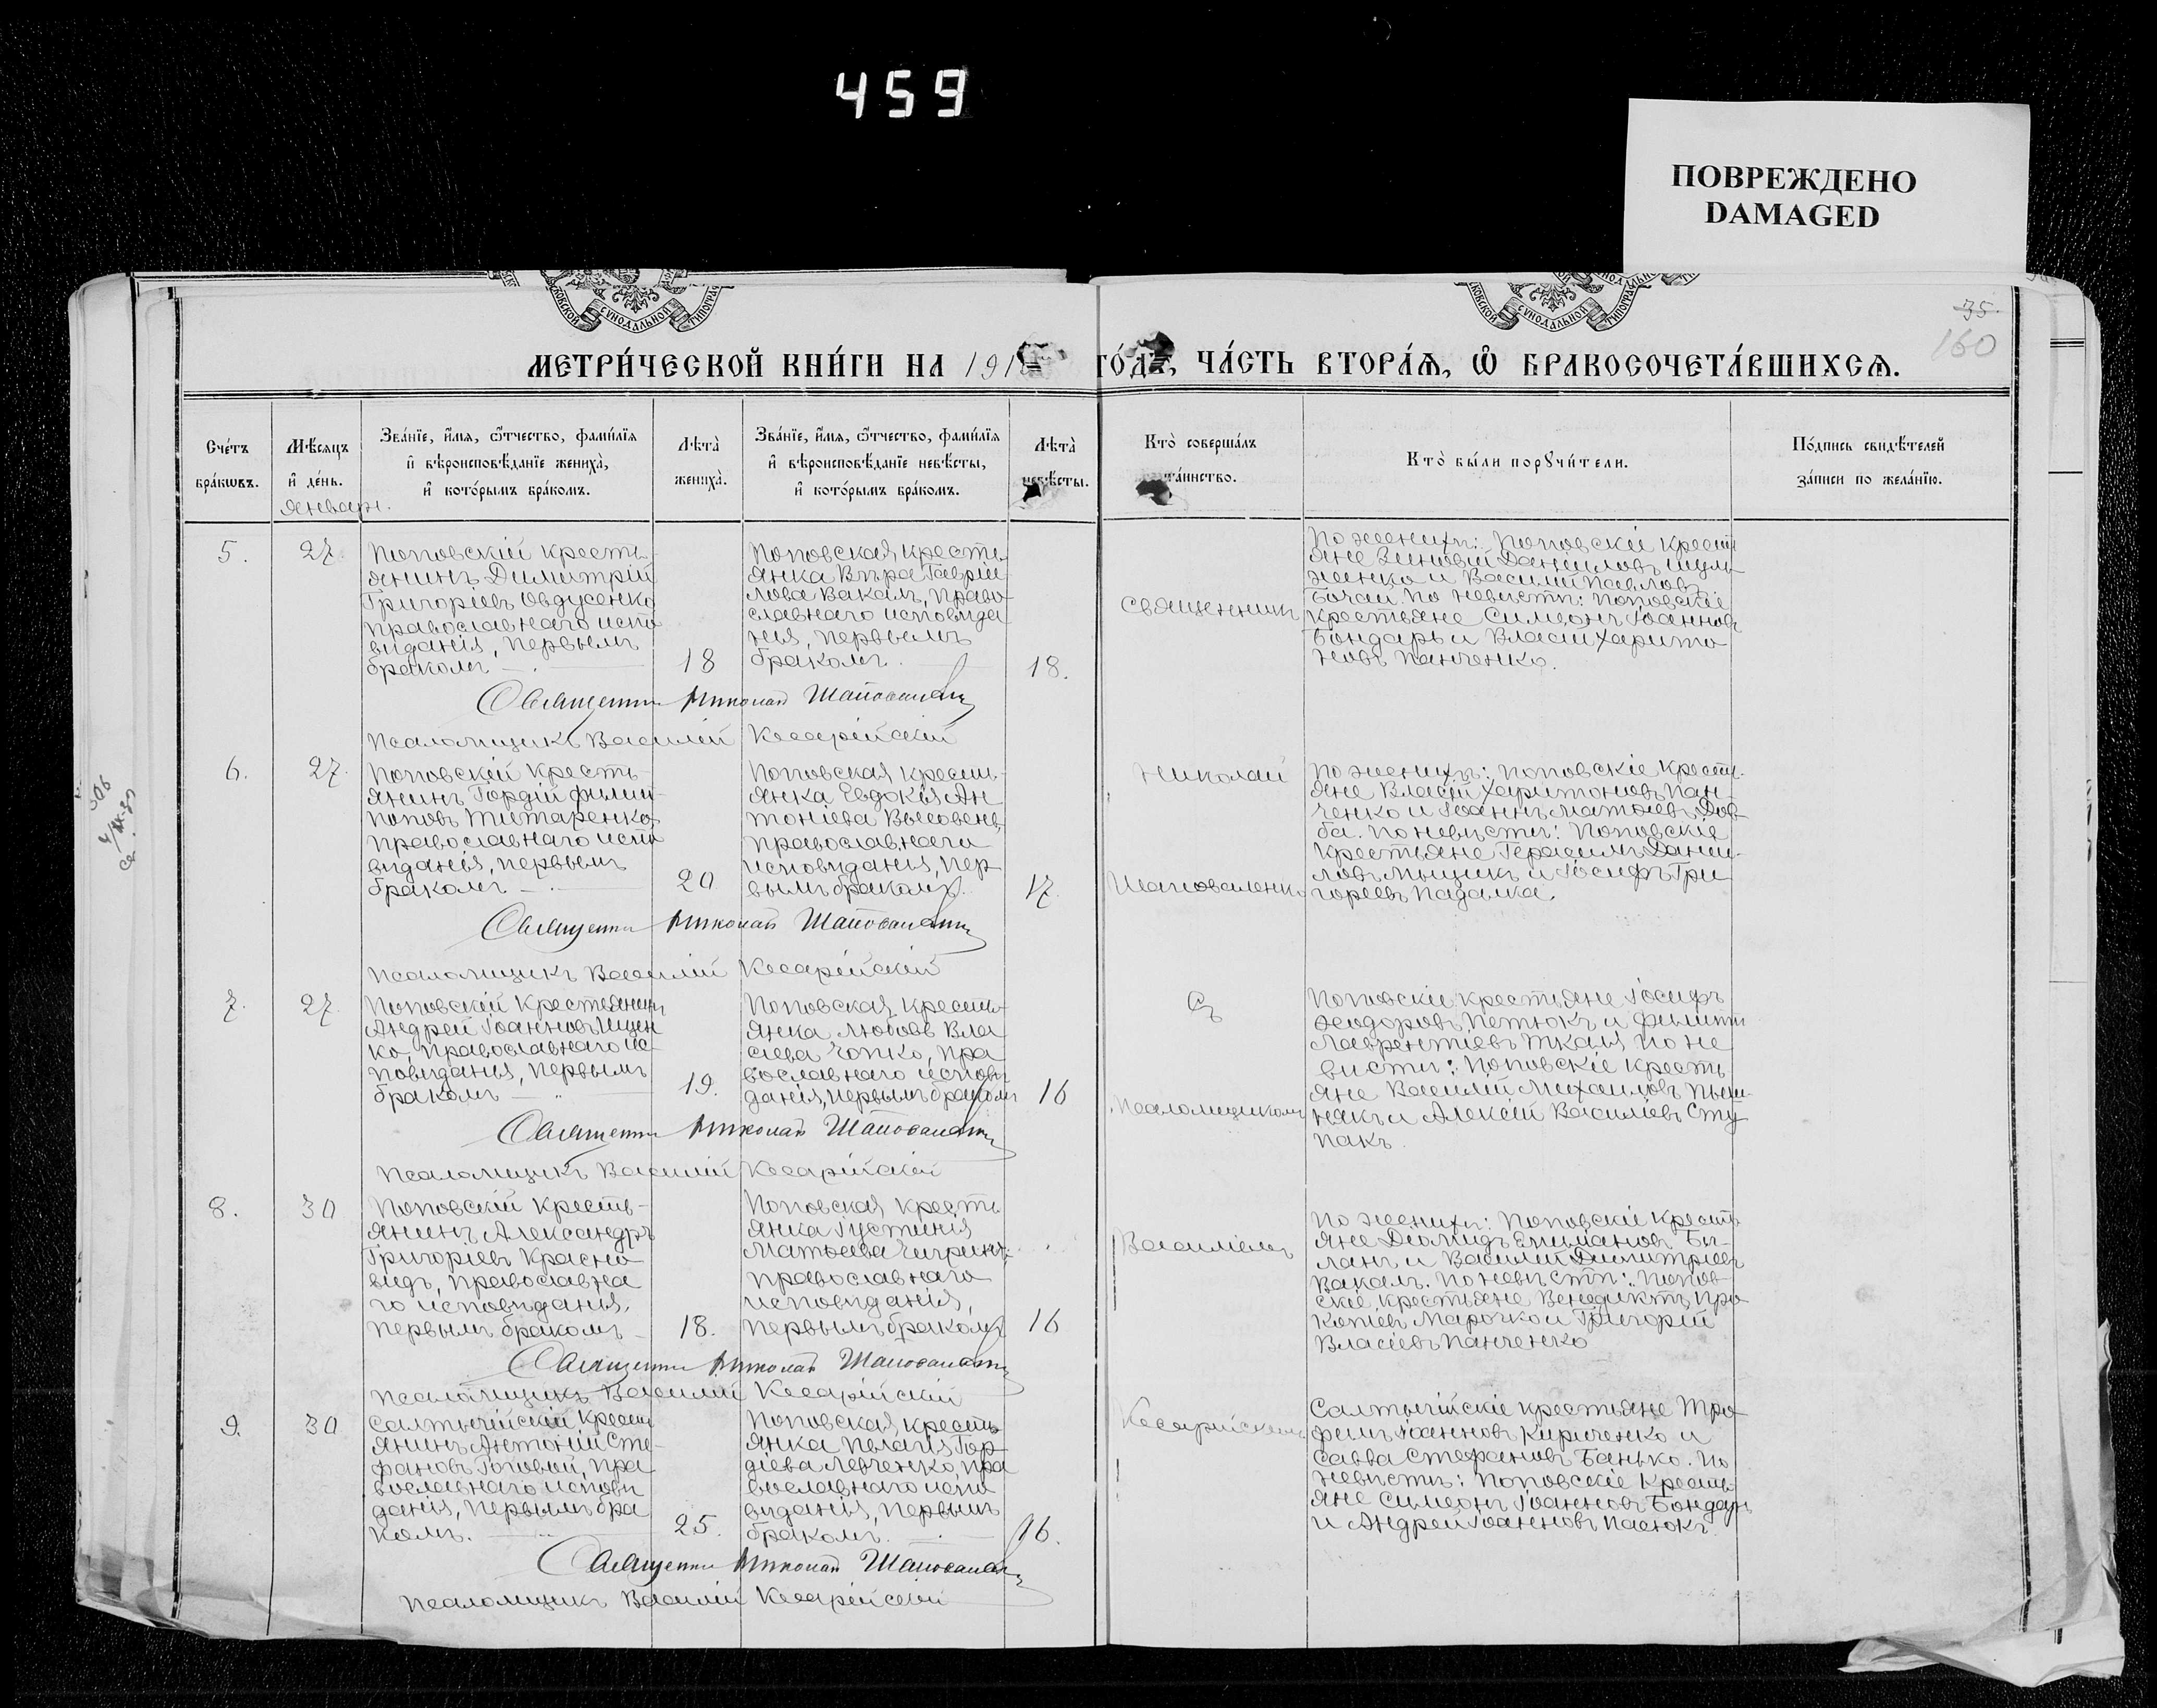 459
ПОВРЕЖДЕНО
DAMAGED
35
160
МЕТРИ́ЧЕСКОЙ КНИ́ГИ НА 191 ГО́ДЪ, ЧА́СТЬ ВТОРА́Ѧ, Ѽ БРАКОСОЧЕТА́ВШИХСѦ.
Счетъ бракѡвъ.
Мѣсяцъ и день.
Января.
Званіе, имя, ѿчество, фамилія и вѣроисповѣданіе жениха, и которымъ бракомъ.
Лѣта жениха.
Званіе, имя, ѿчество, фамилія и вѣроисповѣданіе невѣсты, и которымъ бракомъ.
Лѣта невѣсты.
Кто совершалъ таинство.
Кто были порꙋчители.
Подпись свидѣтелей записи по желанію.
5.
27
Поповскій кресть
янинъ Димитрій
Григоріевъ Овдусенко
православнаго испо
вѣданія, первымъ
бракомъ
18
Поповская кресть
янка Вѣра Гаврій
лова Вакалъ, право
славнаго исповѣда
нія, первымъ
бракомъ.
18.
Священникъ
По женихѣ: Поповскіе кресть
яне Зиновій Даніиловъ Шуль
женко и Василій Павловъ
Бочаи. По невѣстѣ: Поповскіе
крестьяне Симеонъ Іоанновъ
Бондарь и Власій Харито
новъ Панченко.
Священникъ Николай Шаповаленко
Псаломщикъ Василій Кесарійскій
6.
27.
Поповскій кресть-
янинъ Гордій Филип-
повъ Титаренко
православнаго испо
вѣданія, первымъ
бракомъ
20
Поповская кресть-
янка Евдокія Ан
тоніева
православнаго
исповѣданія, пер
вымъ бракомъ.
17.
Николай
Шаповаленко
По женихѣ: Поповскіе кресть-
яне Власій Харитоновъ Пан-
ченко и Іоаннъ Матѳіевъ Дов-
ба. По невѣстѣ: Поповскіе
крестьяне Герасимъ Даніи-
ловъ Мыцикъ и Іосифъ Гри
горіевъ Падалка.
Священникъ Николай Шаповаленко
Псаломщикъ Василій Кесарійскій
7.
27
Поповскій крестьянинъ
Андрей Іоанновъ Ищен
ко, православнаго ис-
повѣданія, первымъ
бракомъ
19.
Поповская кресть-
янка Любовь Вла
сіева Чопко, пра
вославнаго исповѣ
данія, первымъ бракомъ
16
Съ
Псаломщикомъ
Поповскіе крестьяне Іосифъ
Ѳеодоровъ Петюкъ и Филиппъ
Лаврентіевъ Ткаля По не
вѣстѣ: Поповскіе кресть
яне Василій Михаиловъ
и Алексій Василіевъ Сту
пакъ.
Священникъ Николай Шаповаленко
Псаломщикъ Василій Кесарійскій
8.
30
Поповскій кресть-
янинъ Александръ
Григоріевъ Красно
видъ, православна
го исповѣданія,
первымъ бракомъ
18.
Поповская кресть
янка Іустинія
Матѳіева Чигринъ,
православнаго
исповѣданія,
первымъ бракомъ
16
Василіемъ
По женихѣ: Поповскіе кресть
яне Діомидъ Би-
ланъ и Василій Димитріевъ
Вакалъ. По невѣстѣ: Попов-
скіе крестьяне Венедиктъ Про
копіевъ Марочко и Григорій
Власіевъ Панченко
Священникъ Николай Шаповаленко
Псаломщикъ Василій Кесарійскій
9.
30
Салтычійскій кресть
янинъ Антоній Сте-
фановъ Роговой, пра
вославнаго исповѣ
данія, первымъ бра
комъ.
25.
Поповская кресть
янка Пелагія Гор
діева Левченко, пра
вославнаго испо
вѣданія, первымъ
бракомъ.
16.
Кесарійскимъ
Салтычійскіе крестьяне Тро
фимъ Іоанновъ Кириченко и
Савва Стефановъ Банько. По
невѣстѣ: Поповскіе кресть-
яне Симеонъ Іоанновъ Бондарь
и Андрей Іоанновъ Пасюкъ.
Священникъ Николай Шаповаленко
Псаломщикъ Василій Кесарійскій